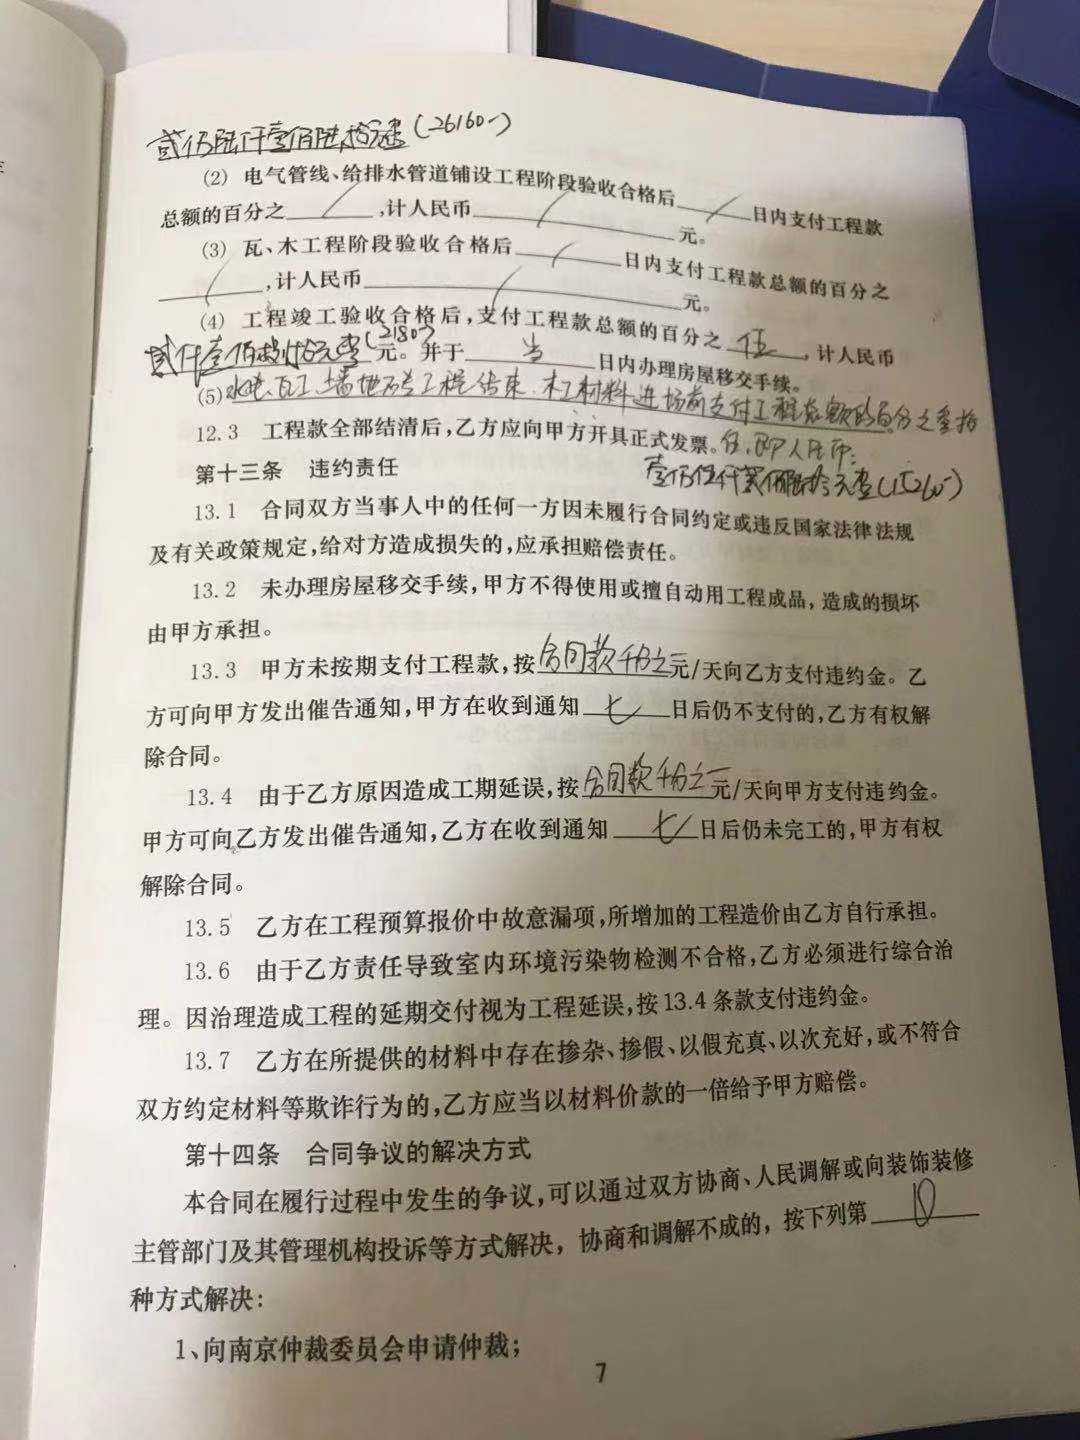 贰万陆仟壹佰陆拾元整(26160-)
(2) 电气管线、给排水管道铺设工程阶段验收合格后 / 日内支付工程款
总额的百分之 / ,计人民币 / 元。
(3) 瓦、木工程阶段验收合格后 / 日内支付工程款总额的百分之
/ ,计人民币 / 元。
(4) 工程竣工验收合格后,支付工程款总额的百分之 伍 ,计人民币
贰仟壹佰捌拾元整(2180-)元。并于 当 日内办理房屋移交手续。
(5)水电、瓦工、墙地砖工程结束,木工材料进场前支付工程总额的百分之叁拾
12.3 工程款全部结清后,乙方应向甲方开具正式发票。伍,即人民币:
第十三条 违约责任
壹万伍仟贰佰陆拾元整(15260-)
13.1 合同双方当事人中的任何一方因未履行合同约定或违反国家法律法规
及有关政策规定,给对方造成损失的,应承担赔偿责任。
13.2 未办理房屋移交手续,甲方不得使用或擅自动用工程成品,造成的损坏
由甲方承担。
13.3 甲方未按期支付工程款,按合同款千分之一元/天向乙方支付违约金。乙
方可向甲方发出催告通知,甲方在收到通知 七 日后仍不支付的,乙方有权解
除合同。
13.4 由于乙方原因造成工期延误,按合同款千分之一元/天向甲方支付违约金。
甲方可向乙方发出催告通知,乙方在收到通知 七 日后仍未完工的,甲方有权
解除合同。
13.5 乙方在工程预算报价中故意漏项,所增加的工程造价由乙方自行承担。
13.6 由于乙方责任导致室内环境污染物检测不合格,乙方必须进行综合治
理。因治理造成工程的延期交付视为工程延误,按13.4条款支付违约金。
13.7 乙方在所提供的材料中存在掺杂、掺假、以假充真、以次充好,或不符合
双方约定材料等欺诈行为的,乙方应当以材料价款的一倍给予甲方赔偿。
第十四条 合同争议的解决方式
本合同在履行过程中发生的争议,可以通过双方协商、人民调解或向装饰装修
主管部门及其管理机构投诉等方式解决,协商和调解不成的,按下列第
种方式解决:
1、向南京仲裁委员会申请仲裁;
7